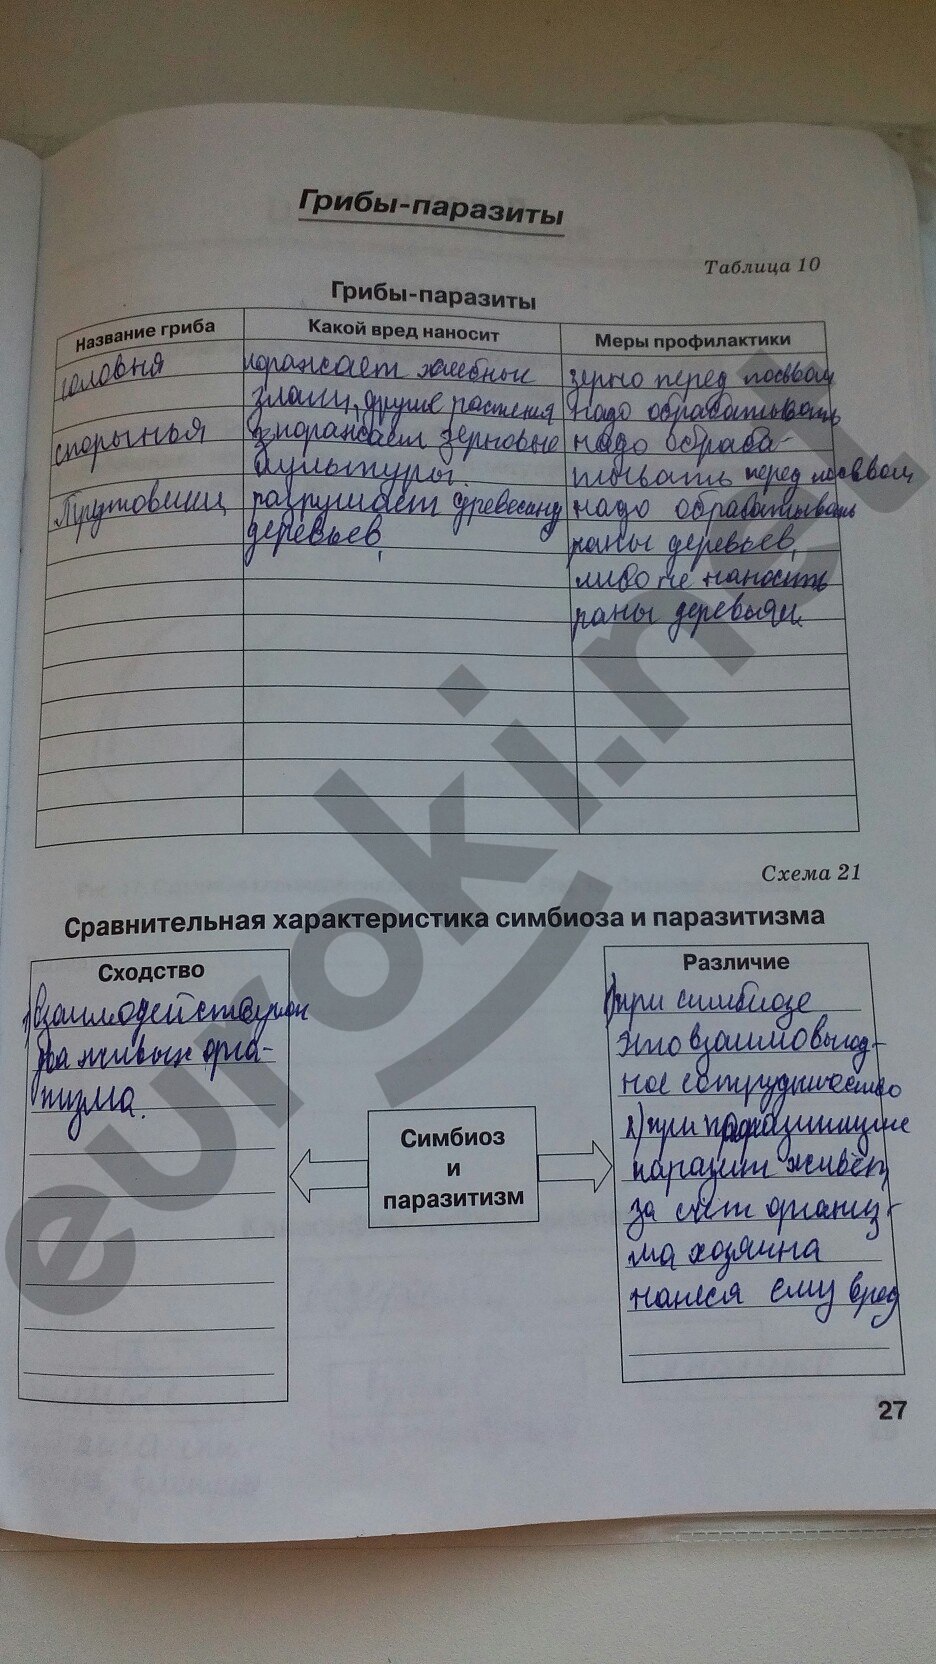 Грибы-паразиты
Таблица 10
Грибы-паразиты
Название гриба
Какой вред наносит
Меры профилактики
головня
поражает хлебные
злаки, другие растения
зерно перед посевом
надо обрабатывать
спорынья
поражает зерновые
культуры.
надо обраба-
тывать перед посевом
Трутовики
разрушает древесину
деревьев,
надо обрабатывать
раны деревьев,
либо не наносить
раны деревьям.
Схема 21
Сравнительная характеристика симбиоза и паразитизма
Сходство
1) взаимодействуют
два живых орга-
низма.
Симбиоз
и
паразитизм
Различие
1) при симбиозе
это взаимовыгод-
ное сотрудничество
2) при паразитизме
паразит живёт
за счёт организ-
ма хозяина
нанеся ему вред
27
euroki.net